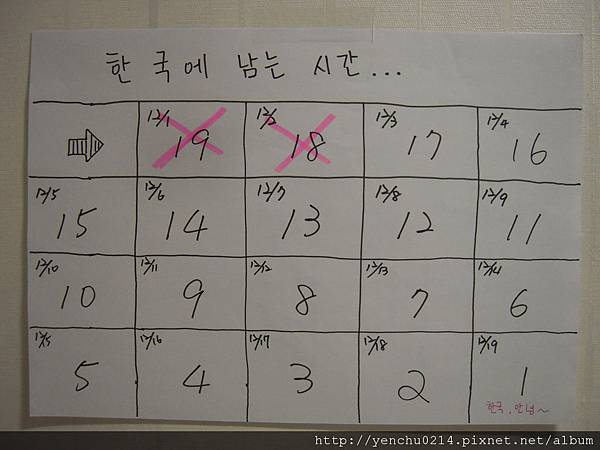 한국에 남는 시간...
12/1 12/2 12/3 12/4
19 18 17 16
12/5 12/6 12/7 12/8 12/9
15 14 13 12 11
12/10 12/11 12/12 12/13 12/14
10 9 8 7 6
12/15 12/16 12/17 12/18 12/19
5 4 3 2 1
한국, 안녕~
http://yenchu0214.pixnet.net/album